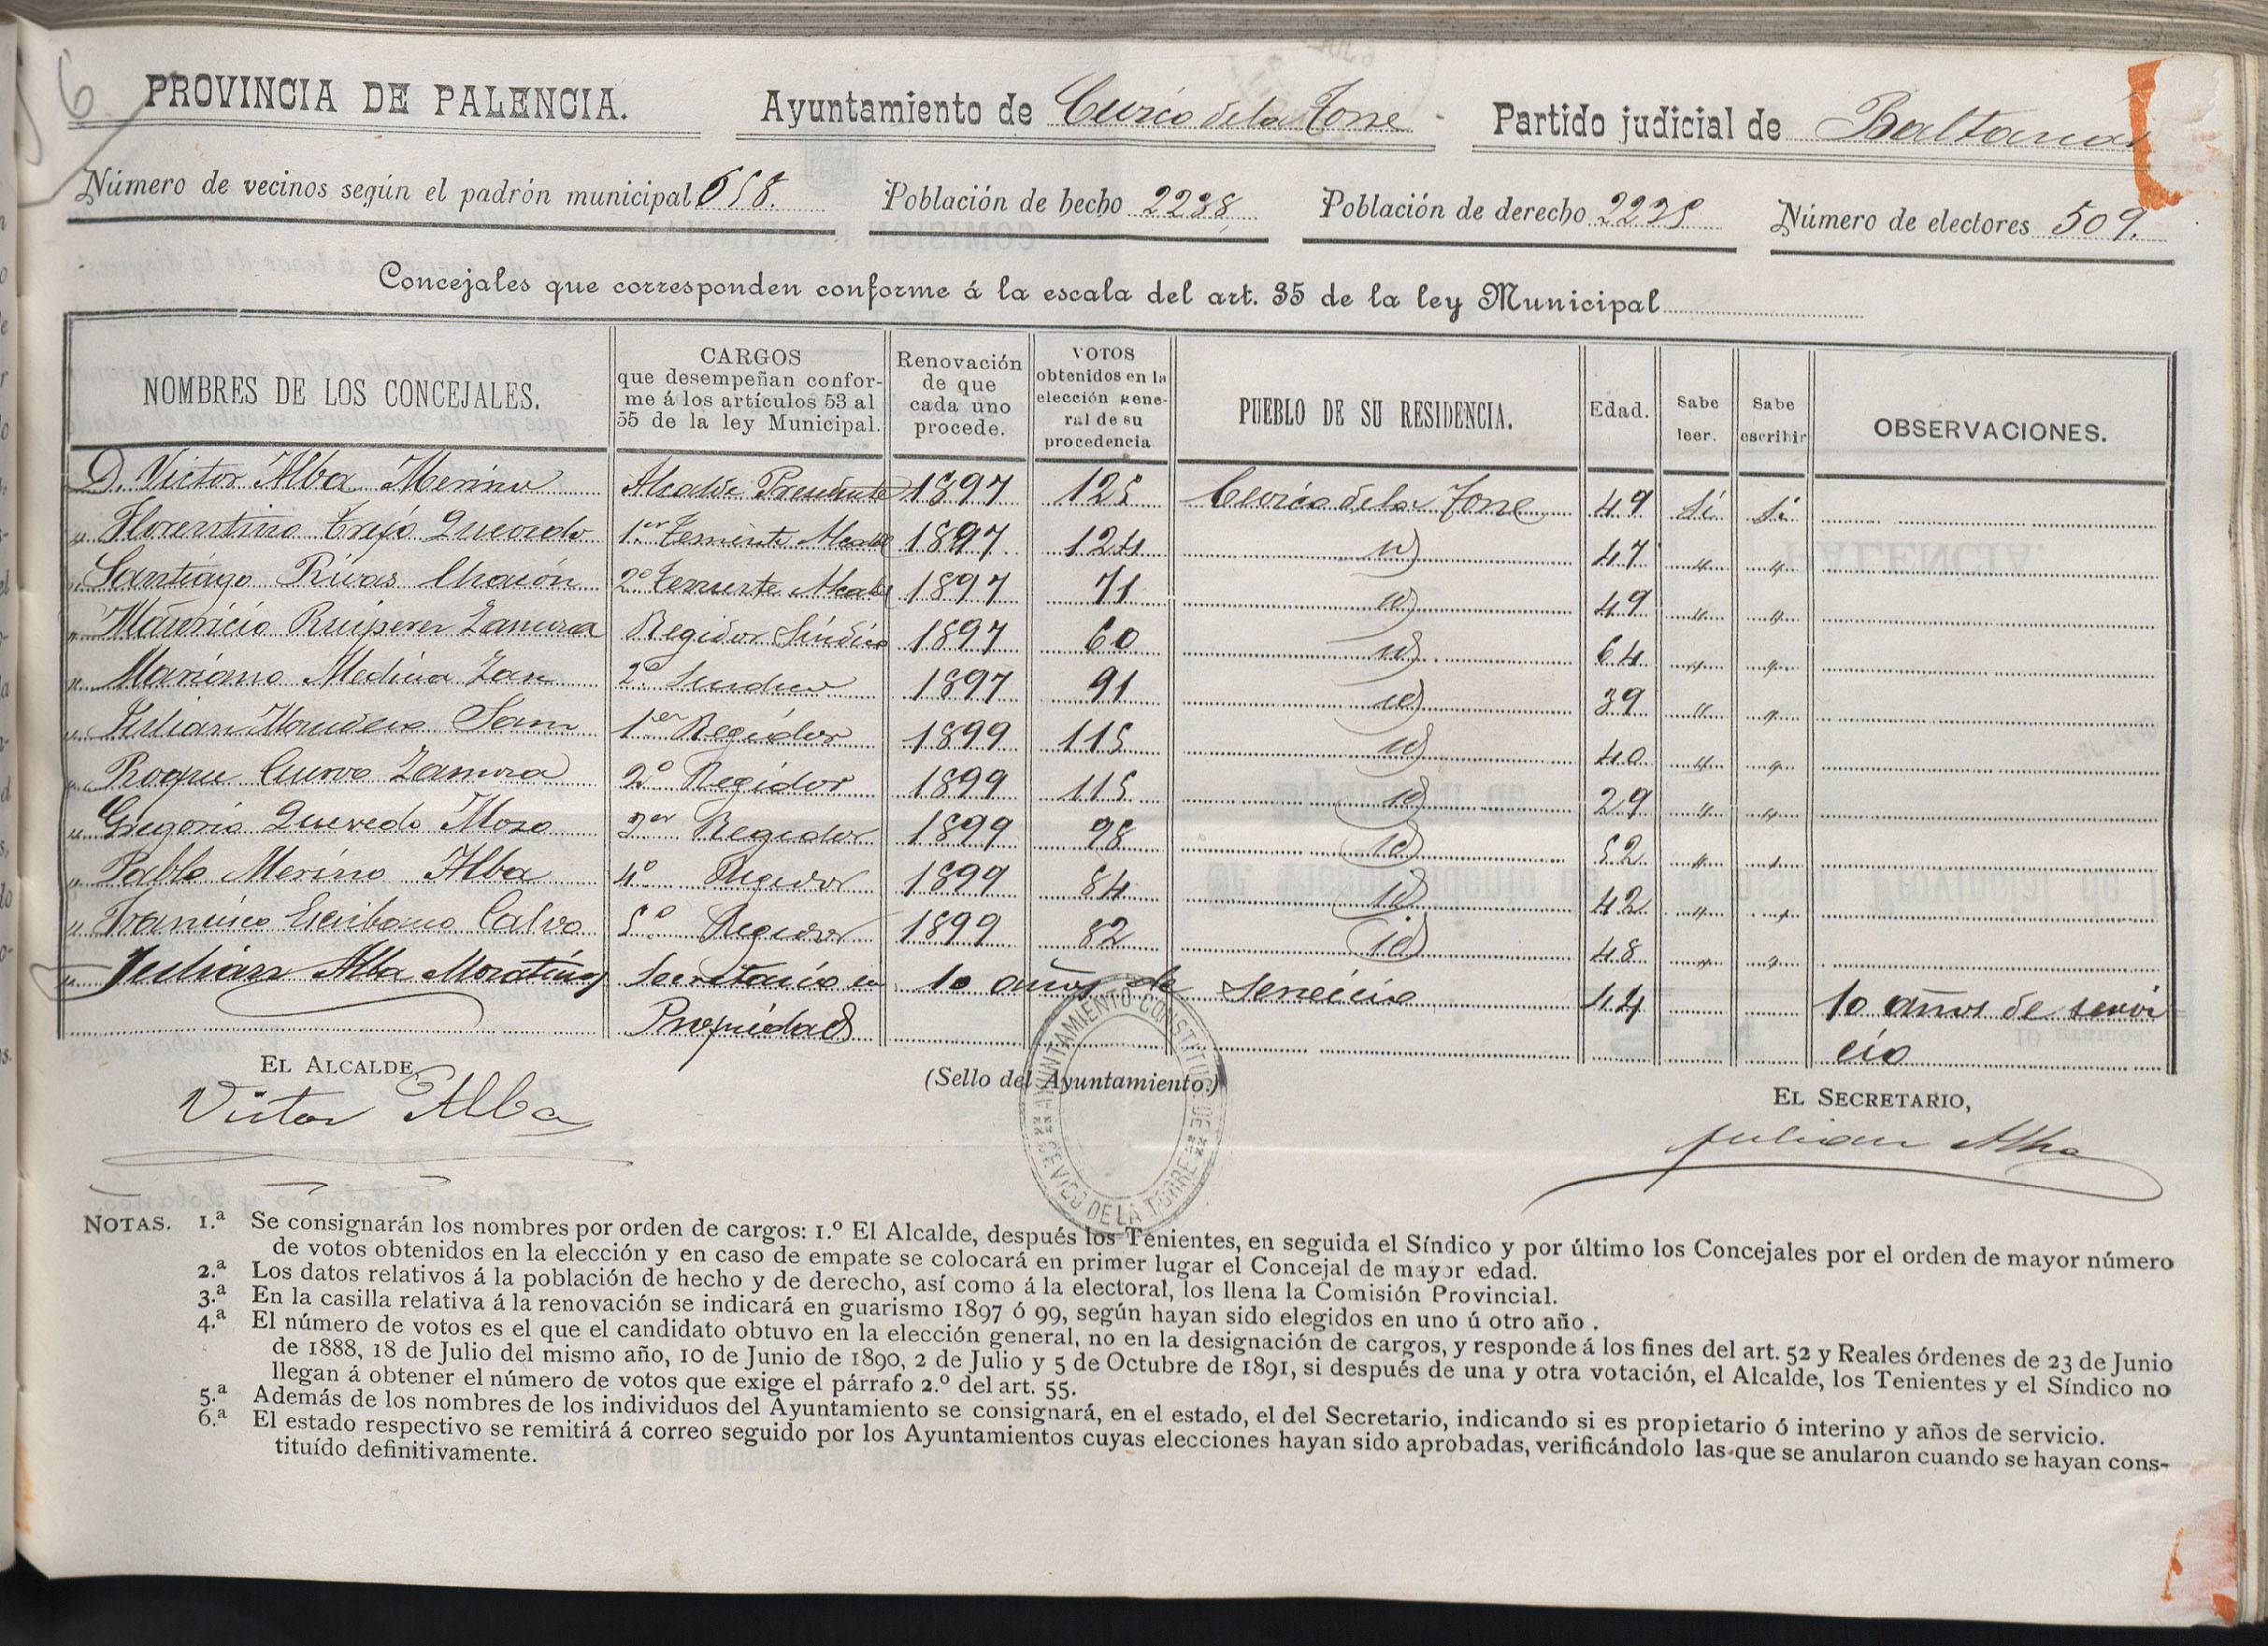 6
PROVINCIA DE PALENCIA. Ayuntamiento de Cevico de la Torre Partido judicial de Baltanás
Número de vecinos según el padrón municipal 658. Población de hecho 2238 Población de derecho 2225 Número de electores 509.
Concejales que corresponden conforme á la escala del art. 35 de la ley Municipal
NOMBRES DE LOS CONCEJALES. CARGOS que desempeñan confor- me á los artículos 53 al 55 de la ley Municipal. Renovación de que cada uno procede. VOTOS obtenidos en la elección gene- ral de su procedencia PUEBLO DE SU RESIDENCIA. Edad. Sabe leer. Sabe escribir OBSERVACIONES.
D. Victor Alba Merino Alcalde Presidente 1897 125 Cevico de la Torre 49 Sí Sí
" Florentino Trejo Quevedo 1.er Teniente Alcalde 1897 124 id 47 " "
" Santiago Rivas Chacón 2º Teniente Alcalde 1897 71 id 49 " "
" Mauricio Ruiperez Zamora Regidor Síndico 1897 60 id 64 " "
" Mariano Medina Zan 2º Sindico 1897 91 id 39 " "
" Julian 1er Regidor 1899 115 id 40 " "
" Roque Cuervo Zamora 2º Regidor 1899 115 id 29 " "
" Gregorio Quevedo Moro 3er Regidor 1899 98 id 52 " "
" Pablo Merino Alba 4º Regidor 1899 84 id 42 " "
" Francisco Escribano Calvo 5º Regidor 1899 82 id 48 " "
" Julian Alba Moratinos Secretario en 10 años de servicio 44 10 años de servi
Propiedad cio
EL ALCALDE, (Sello del Ayuntamiento.) EL SECRETARIO,
Victor Alba Julian Alba
AYUNTAMIENTO CONSTITUC. DE CEVICO DE LA TORRE
NOTAS. 1.ª Se consignarán los nombres por orden de cargos: 1.º El Alcalde, después los Tenientes, en seguida el Síndico y por último los Concejales por el orden de mayor número
de votos obtenidos en la elección y en caso de empate se colocará en primer lugar el Concejal de mayor edad.
2.ª Los datos relativos á la población de hecho y de derecho, así como á la electoral, los llena la Comisión Provincial.
3.ª En la casilla relativa á la renovación se indicará en guarismo 1897 ó 99, según hayan sido elegidos en uno ú otro año.
4.ª El número de votos es el que el candidato obtuvo en la elección general, no en la designación de cargos, y responde á los fines del art. 52 y Reales órdenes de 23 de Junio
de 1888, 18 de Julio del mismo año, 10 de Junio de 1890, 2 de Julio y 5 de Octubre de 1891, si después de una y otra votación, el Alcalde, los Tenientes y el Síndico no
llegan á obtener el número de votos que exige el párrafo 2.º del art. 55.
5.ª Además de los nombres de los individuos del Ayuntamiento se consignará, en el estado, el del Secretario, indicando si es propietario ó interino y años de servicio.
6.ª El estado respectivo se remitirá á correo seguido por los Ayuntamientos cuyas elecciones hayan sido aprobadas, verificándolo las que se anularon cuando se hayan cons-
tituído definitivamente.